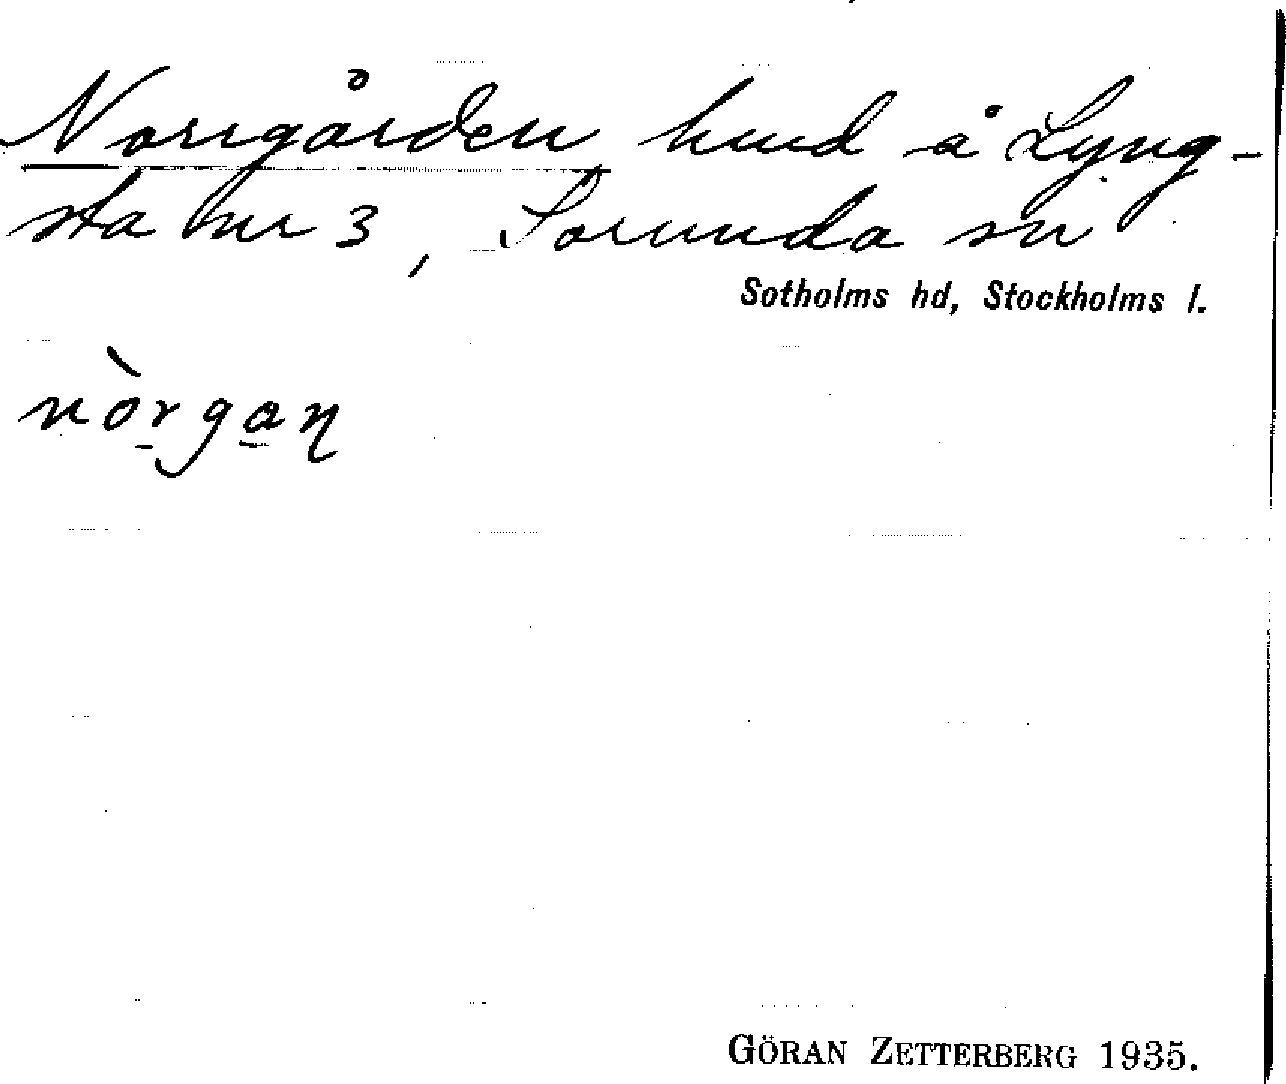 Norrgården hmd å Lyng-
sta nr 3, Sorunda sn
Sotholms hd, Stockholms l.
nòrgan
GÖRAN ZETTERBERG 1935.